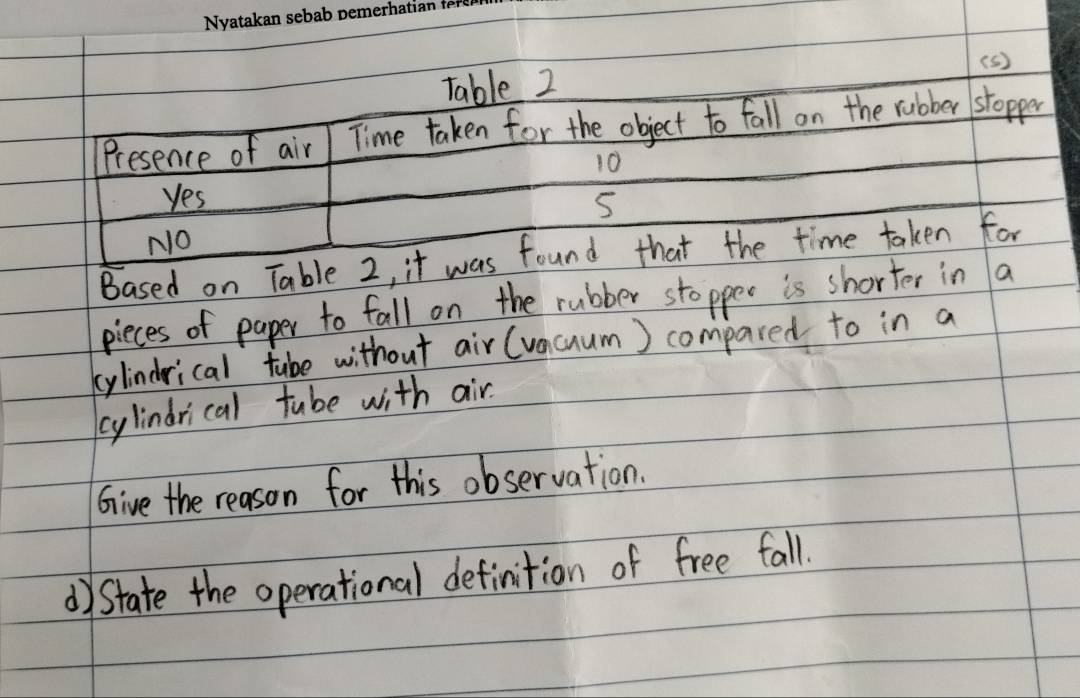 Nyatakan sebab pemerhatian
Table 2
(s)
Presence of air Time taken for the object to fall on the rubber stopper
Yes 10
NO 5
Based on Table 2, it was found that the time taken for
pieces of paper to fall on the rubber stopper is shorter in a
cylindrical tube without air (vacuum) compared to in a
cylindrical tube with air.
Give the reason for this observation.
d) State the operational definition of free fall.